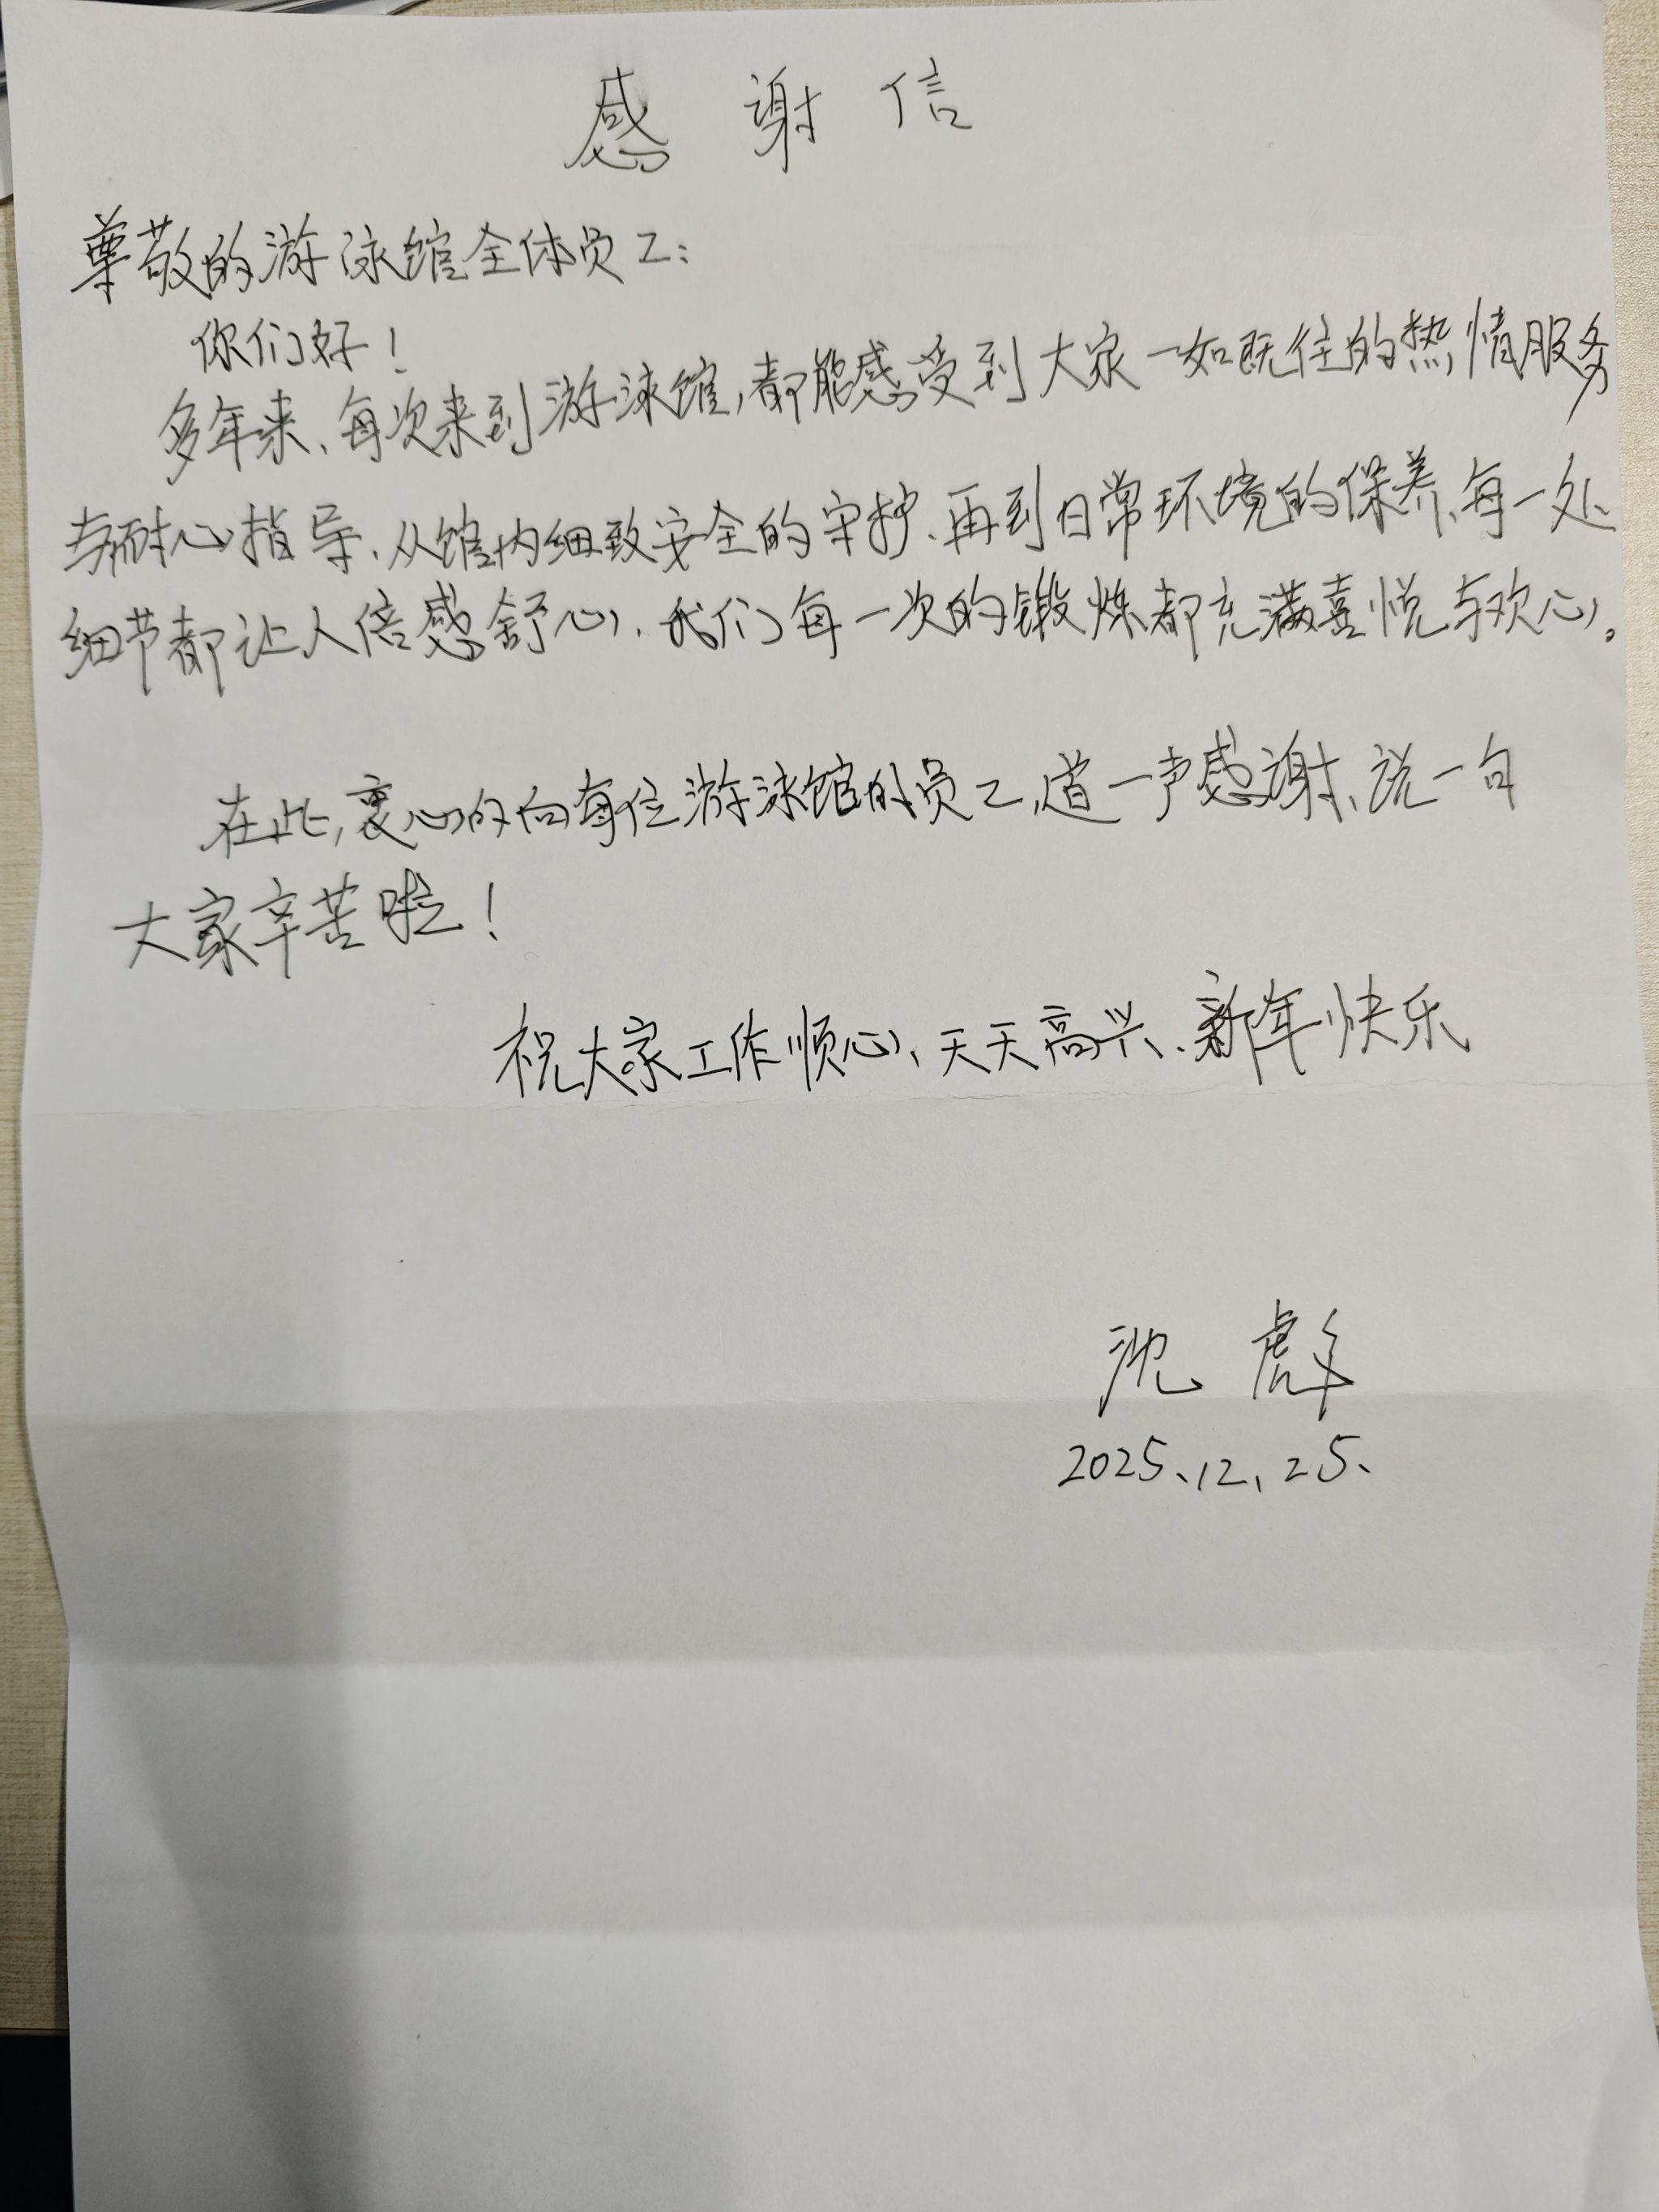 感谢信
尊敬的游泳馆全体员工:
你们好!
多年来、每次来到游泳馆,都能感受到大家一如既往的热情服务
与耐心指导、从馆内细致安全的守护、再到日常环境的保养、每一处
细节都让人倍感舒心、我们每一次的锻炼都充满喜悦与欢心。
在此,衷心的向每位游泳馆的员工,道一声感谢、说一句
大家辛苦啦!
祝大家工作顺心、天天高兴、新年快乐
沈
2025、12、25、